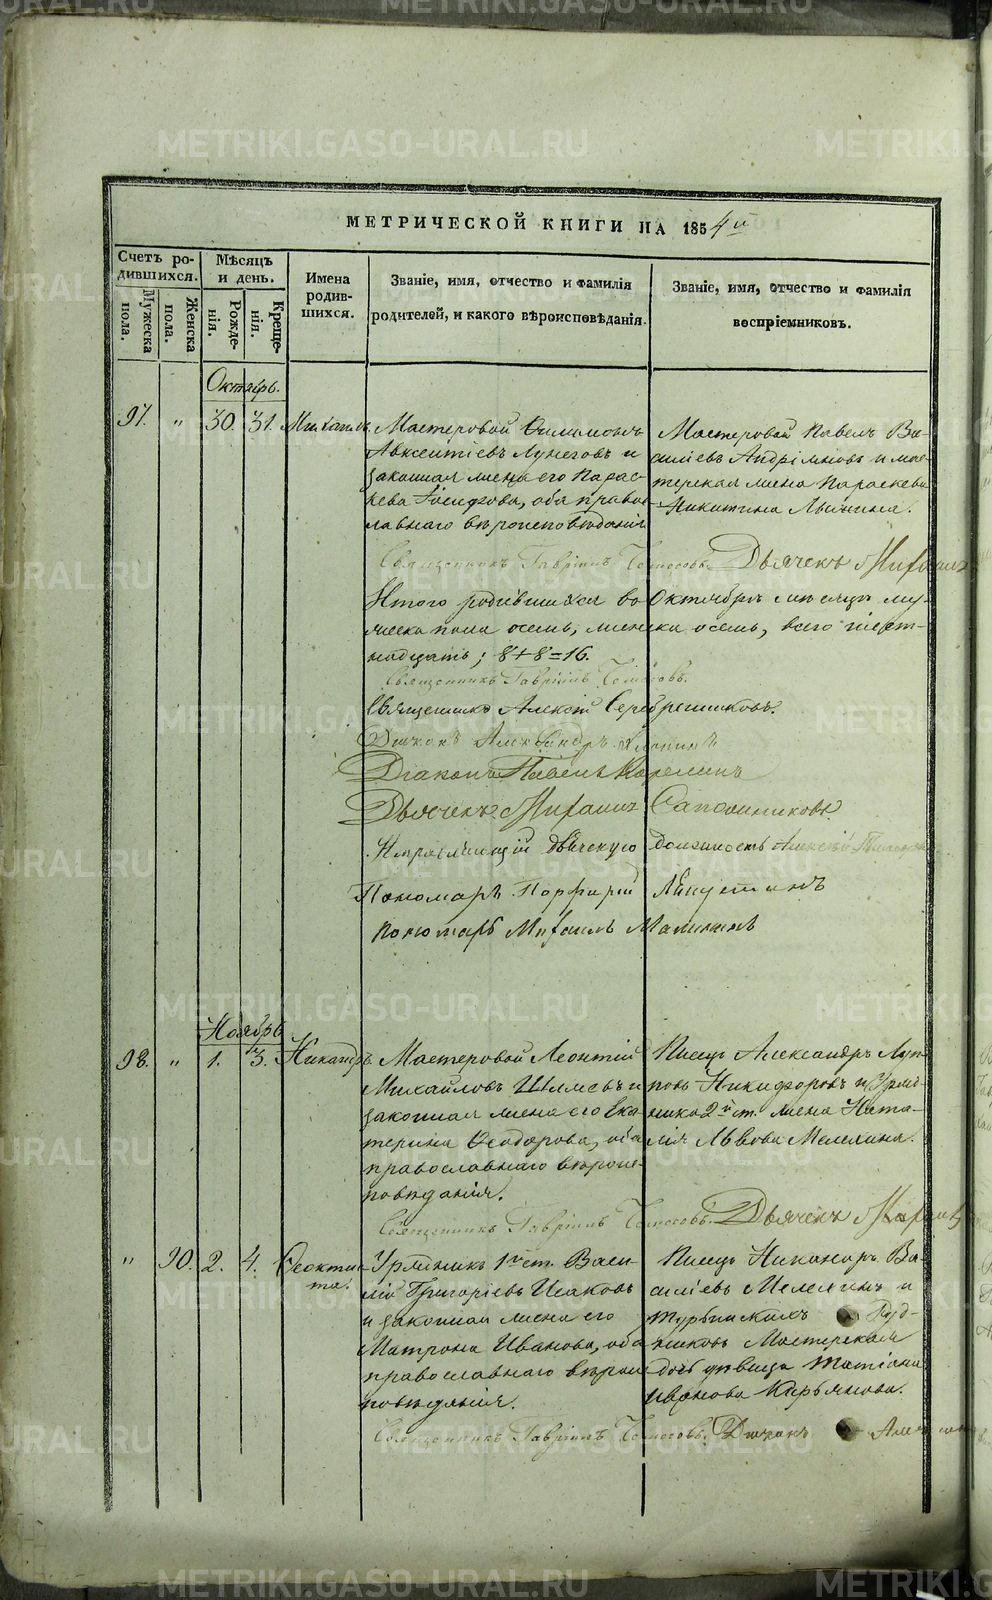 МЕТРИЧЕСКОЙ КНИГИ НА 1854й
Счетъ ро-
дившихся.
Мужеска пола.
Женска пола.
Мѣсяцъ
и день.
Рожде-
нія.
Креще-
нія.
Имена
родив-
шихся.
Званіе, имя, отчество и фамилія
родителей, и какого вѣроисповѣданія.
Званіе, имя, отчество и фамилія
воспріемниковъ.
Октябрь.
97. " 30. 31. Михаилъ.
Мастеровой Филимонъ
Авксентіевъ Лунеговъ и
законная жена его Парас-
кева Іосифова, оба право-
славнаго вѣроисповѣданія
Мастеровой Павелъ Ва-
силіевъ и мас-
терская жена Параскева
Никитина
Священникъ Гавріилъ Дьячекъ Михаилъ
Итого родившихся во Октябрѣ мѣсяцѣ му-
жеска пола осемь, женска осемь, всего шест-
надцать; 8+8=16.
Священникъ Гавріилъ
Священникъ Алексій Серебренниковъ.
Діаконъ Александръ
Діаконъ Павелъ Карелинъ
Дьячекъ Михаилъ Сапожниковъ.
Исправляющій дьяческую должность Алексій
Пономарь Порфирій
Пономарь Михаилъ Малининъ
Ноябрь
98. " 1. 3. Никандръ.
Мастеровой Леонтій
Михайловъ и
законная жена его Ека-
терина Ѳеодорова, оба
православнаго вѣроис-
повѣданія.
Писецъ Александръ Луп-
повъ Никифоровъ и Уряд-
ника 2й ст. жена Ната-
лія Львова Мелехина.
Священникъ Гавріилъ Дьячекъ Михаилъ
" 90. 2. 4. Ѳеоктис-
та.
Урядникъ 1й ст. Васи-
лій Григоріевъ Исаковъ
и законная жена его
Матрона Иванова, оба
православнаго вѣроис-
повѣданія.
Писецъ Никаноръ Ва-
силіевъ Мелехинъ и
Турьинскихъ Руд-
никовъ Мастерская
дочь дѣвица Татіана
Иванова Кирьянова.
Священникъ Гавріилъ Діаконъ
METRIKI.GASO-URAL.RU